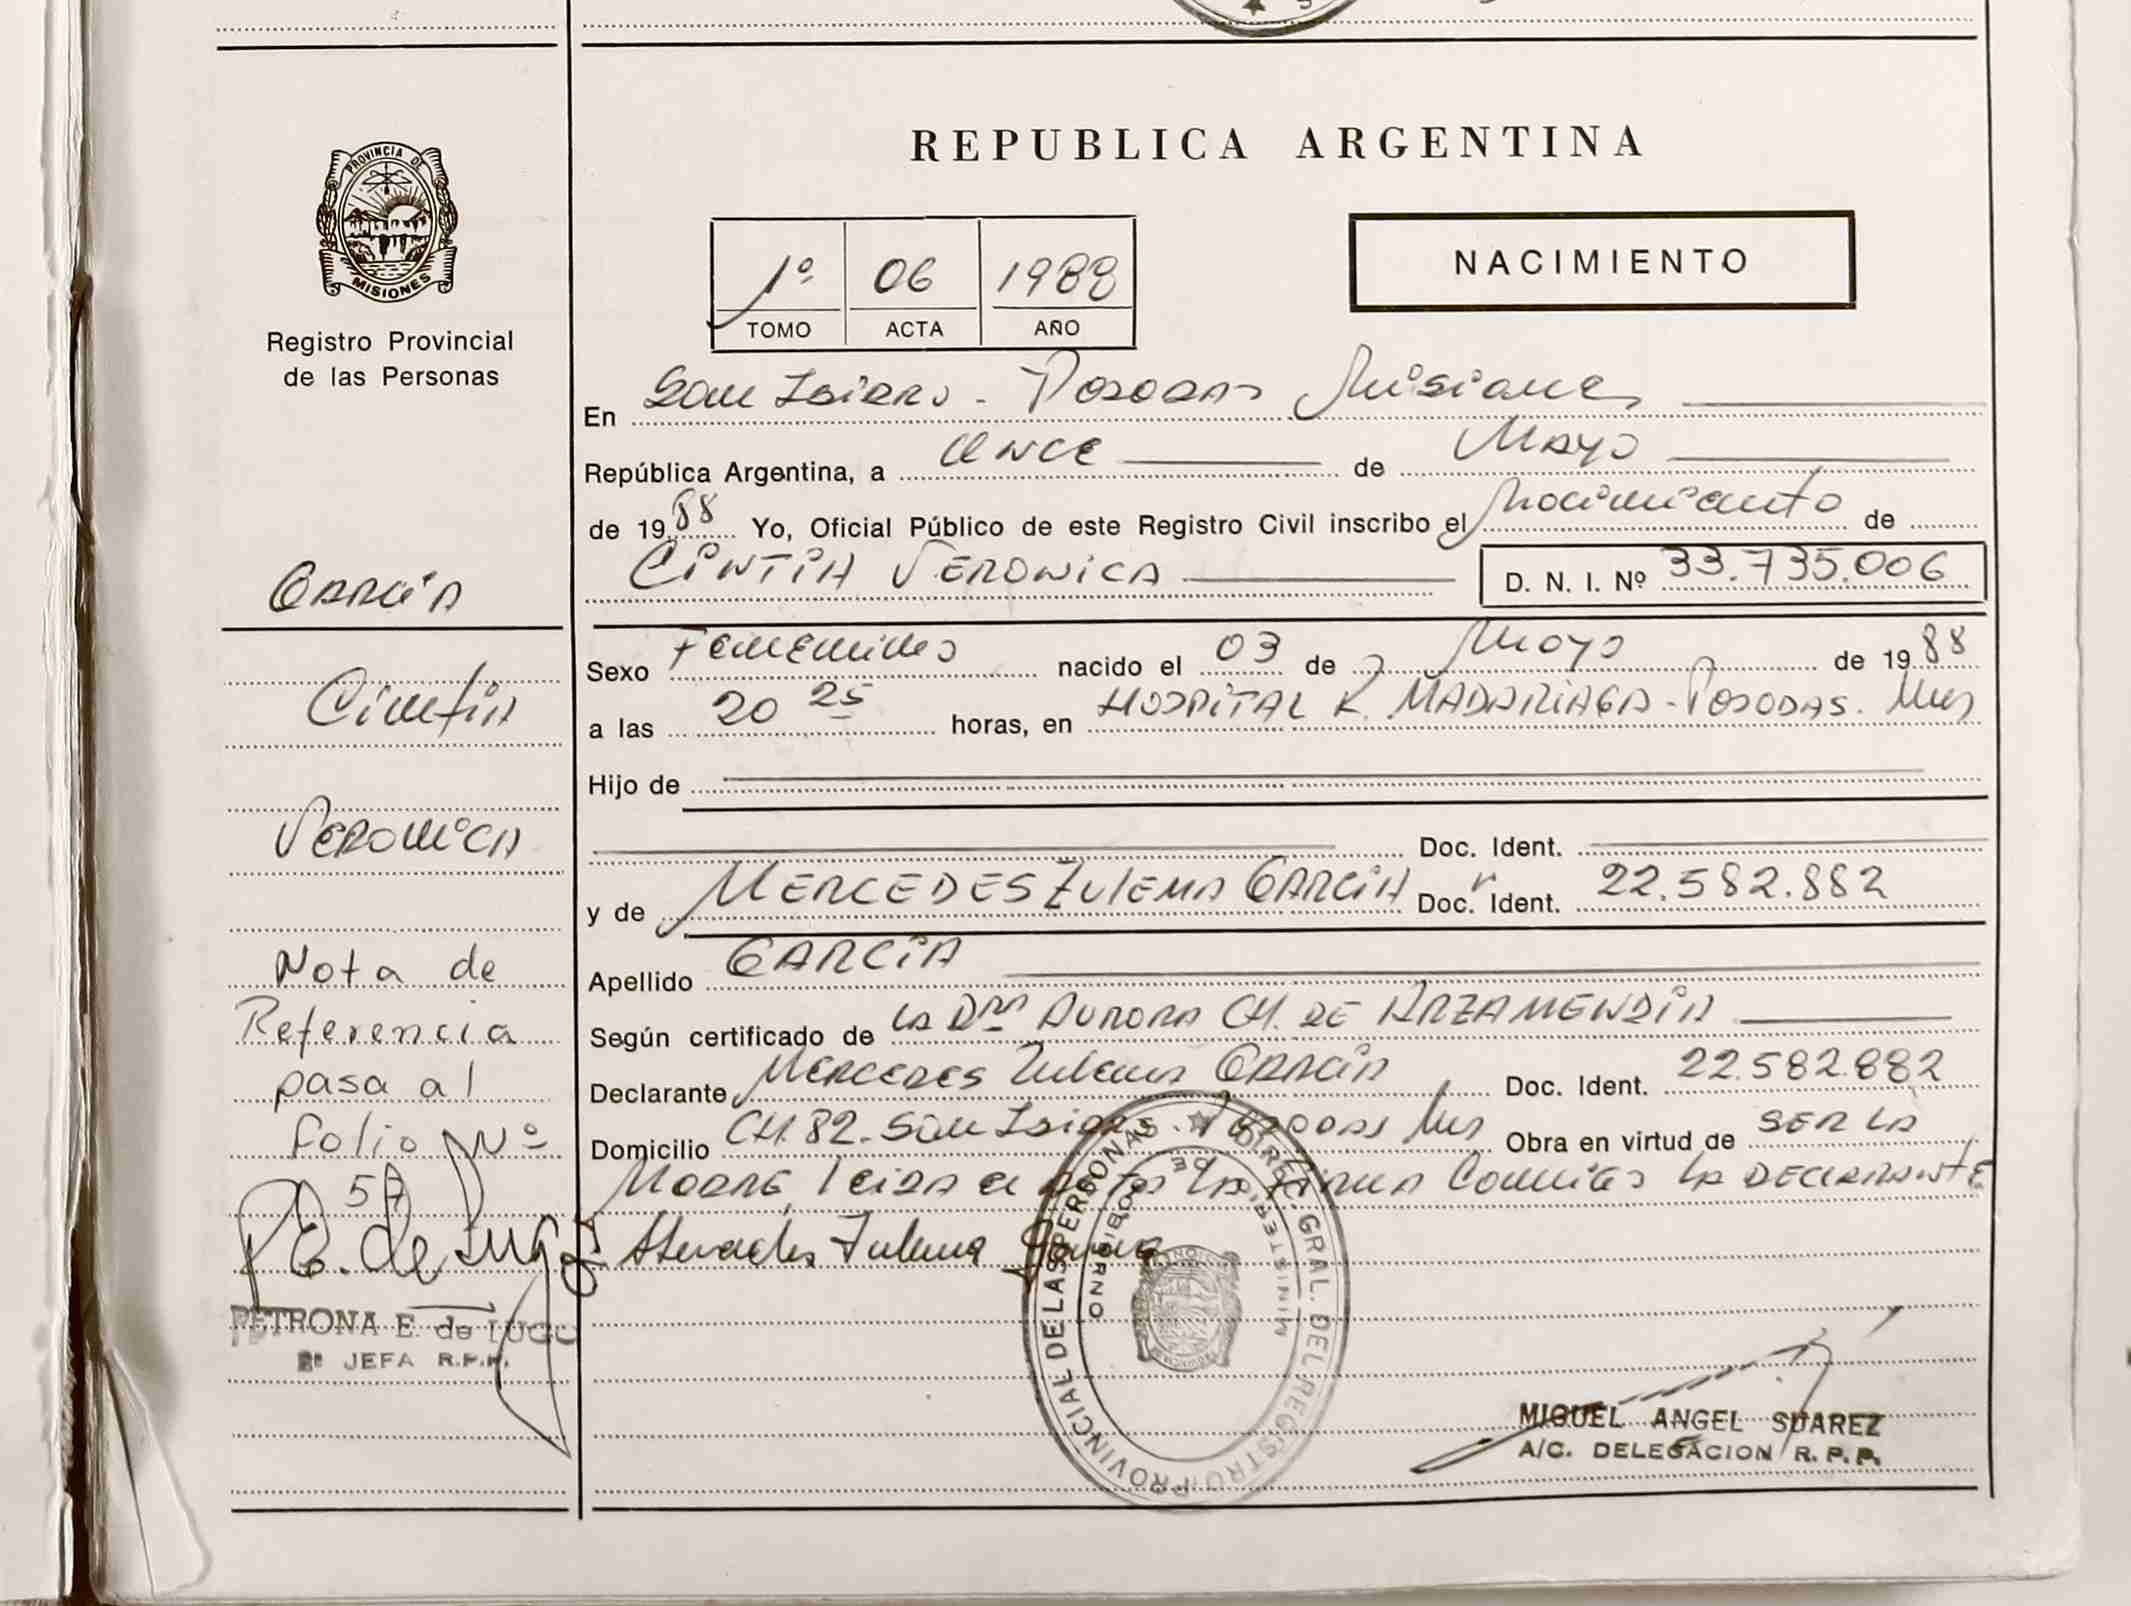 REPUBLICA ARGENTINA
PROVINCIA DE
MISIONES
Registro Provincial
de las Personas
1º 06 1988
TOMO ACTA AÑO
NACIMIENTO
En San Isidro - Posadas Misiones
República Argentina, a Once de Mayo
de 1988 Yo, Oficial Público de este Registro Civil inscribo el Nacimiento de
CINTIA VERONICA D. N. I. Nº 33.735.006
Sexo Femenino nacido el 03 de Mayo de 1988
a las 20 25 horas, en HOSPITAL R. MADARIAGA - POSADAS. Mnes
Hijo de
Doc. Ident.
y de MERCEDES ZULEMA GARCIA Doc. Ident. 22.582.882
Apellido GARCIA
Según certificado de LA DRA AURORA CH. DE ARZAMENDIA
Declarante MERCEDES Zulema GARCIA Doc. Ident. 22.582.882
Domicilio CH. 82. San Isidro Posadas Mnes Obra en virtud de SER LA
MADRE, leida el acta la firma conmigo LA DECLARANTE
Mercedes Zulema Garcia
GARCIA
Cintia
VERONICA
Nota de
Referencia
pasa al
folio Nº
57
P.E. de Lugo
PETRONA E. de LUGO
2º JEFA R.P.P.
DIREC. GRAL. DEL REGISTRO PROVINCIAL DE LAS PERSONAS
MINISTERIO DE GOBIERNO
MIGUEL ANGEL SUAREZ
A/C. DELEGACION R. P. P.